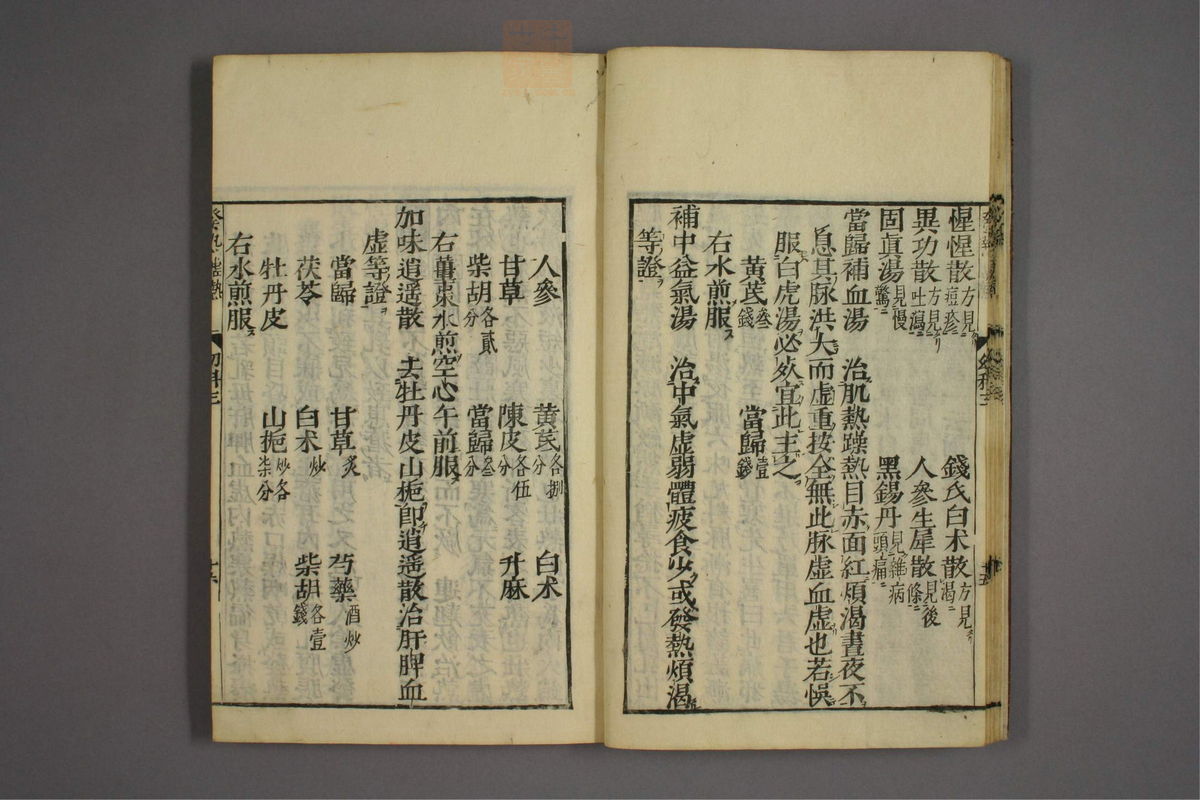 惺惺散方見痘疹 錢氏白术散方見渴
異功散方見吐瀉 人參生犀散見後條
固眞湯見慢驚 黑錫丹見雜病頭痛
當歸補血湯 治肌熱躁熱目赤面紅煩渴晝夜不
息其脉洪大而虛重按全無此脉虛血虛也若悞
服白虎湯必死宜此主之
黃芪叁錢 當歸壹錢
右水煎服
補中益氣湯 治中氣虛弱體疲食少或發熱煩渴
等證
人參 黃芪各捌分 白术
甘草 陳皮各伍分 升麻
柴胡各貳分 當歸叁分
右薑棗水煎空心午前服
加味逍遥散 去牡丹皮山梔卽逍遥散治肝脾血
虛等證
當歸 甘草炙 芍藥酒炒
茯苓 白术炒 柴胡各壹錢
牡丹皮 山梔炒各柒分
右水煎服
幼科三